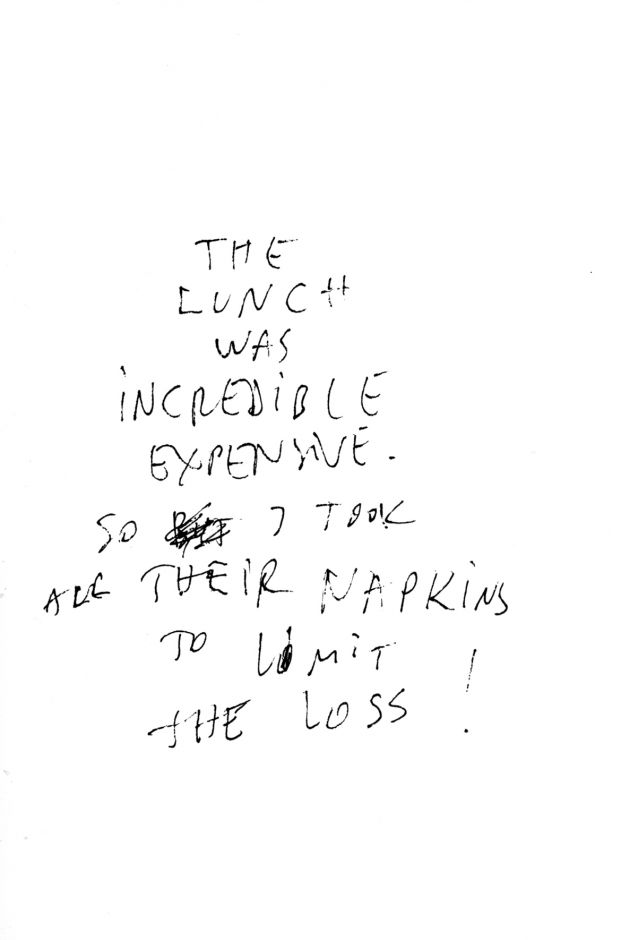 THE
LUNCH
WAS
iNCREDiBLE
EXPENSiVE.
SO I TOOK
ALL THEIR NAPKiNS
TO LiMiT
THE LOSS !